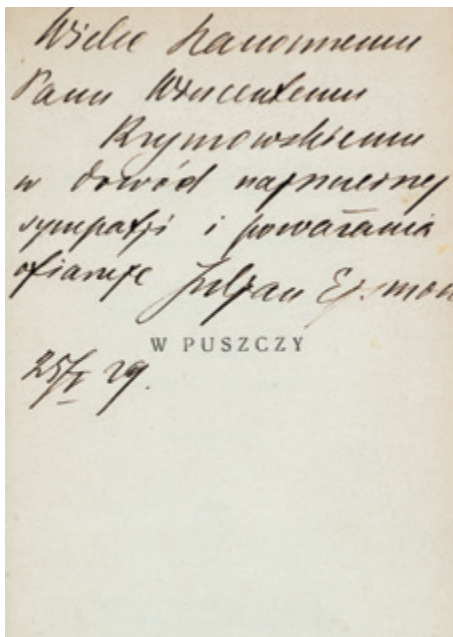 Wielce Szanownemu
Panu Wincentemu
Rzymowskiemu
w dowód najszczerszej
sympatji i poważania
ofiaruje Juljan Ejsmond
W PUSZCZY
25/X 29.